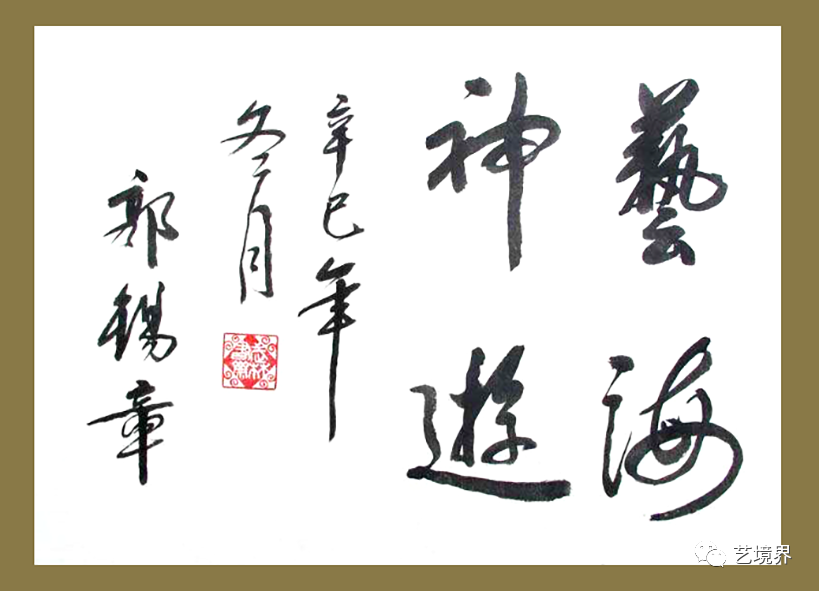 藝海
神遊
辛巳年
冬月
郭錫章
艺境界